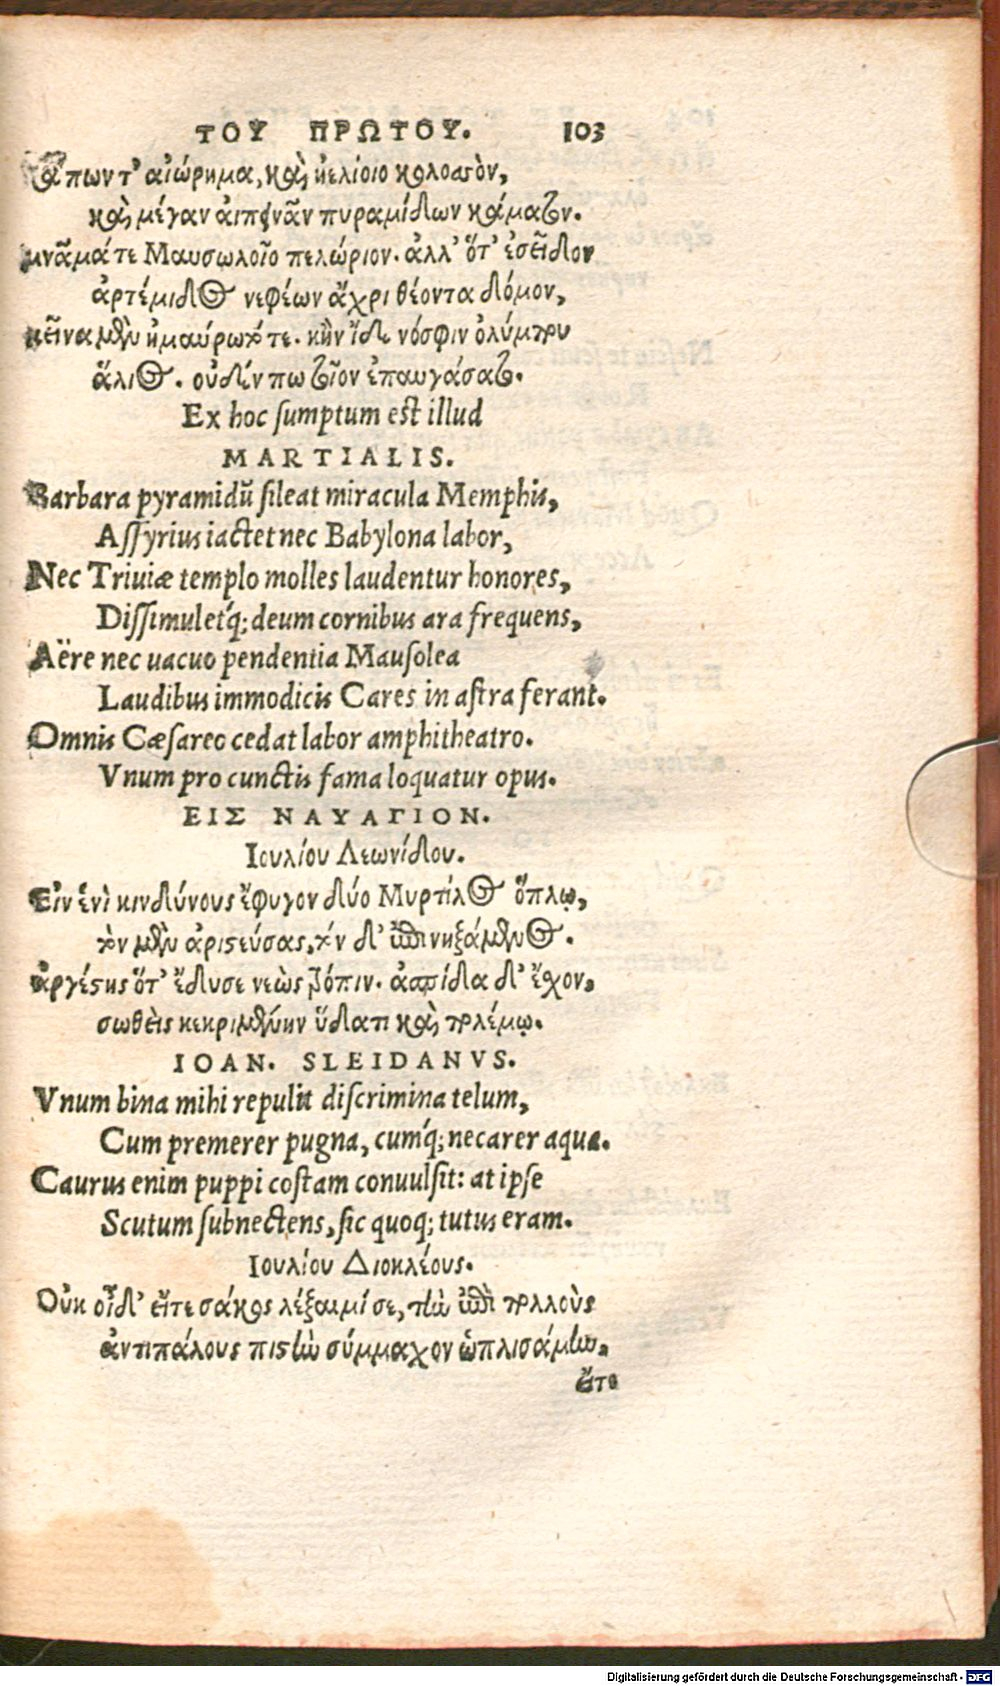 ΤΟΥ ΠΡΩΤΟΥ. 103
κάπων τ' αἰώρημα, καὶ ἠελίοιο κολοσσὸν,
καὶ μέγαν αἰπεινᾶν πυραμίδων κάματον.
μνᾶμά τε Μαυσωλοῖο πελώριον. ἀλλ' ὅτ' ἐσεῖδον
ἀρτέμιδος νεφέων ἄχρι θέοντα δόμον,
κεῖνα μὲν ἠμαύρωτό τε. κἠν ἴδε νόσφιν ὀλύμπου
ἅλιος. οὐδέν πω τοῖον ἐπαυγάσατο.
Ex hoc sumptum est illud
MARTIALIS.
Barbara pyramidũ sileat miracula Memphis,
Assyrius iactet nec Babylona labor,
Nec Triuiæ templo molles laudentur honores,
Dissimuletq́; deum cornibus ara frequens,
Aëre nec uacuo pendentia Mausolea
Laudibus immodicis Cares in astra ferant.
Omnis Cæsareo cedat labor amphitheatro.
Vnum pro cunctis fama loquatur opus.
ΕΙΣ ΝΑΥΑΓΙΟΝ.
Ιουλίου Λεωνίδου.
Εἰν ἑνὶ κινδύνους ἔφυγον δύο Μυρτίλος ὅπλῳ,
τὸν μὲν ἀριστεύσας, τὸν δ' ἐπινηξάμενος.
ἀργέστης ὅτ' ἔδυσε νεὼς τρόπιν. ἀσπίδα δ' ἔχον,
σωθεὶς κεκριμένην ὕδατι καὶ πολέμῳ.
IOAN. SLEIDANVS.
Vnum bina mihi repulit discrimina telum,
Cum premerer pugna, cumq́; necarer aqua.
Caurus enim puppi costam conuulsit: at ipse
Scutum subnectens, sic quoq; tutus eram.
Ιουλίου Διοκλέους.
Οὐκ οἶδ' εἴτε σάκος λέξαιμί σε, τὴν ἐπὶ πολλοὺς
ἀντιπάλους πιστὴν σύμμαχον ὡπλισάμην.
εἴτε
Digitalisierung gefördert durch die Deutsche Forschungsgemeinschaft - DFG